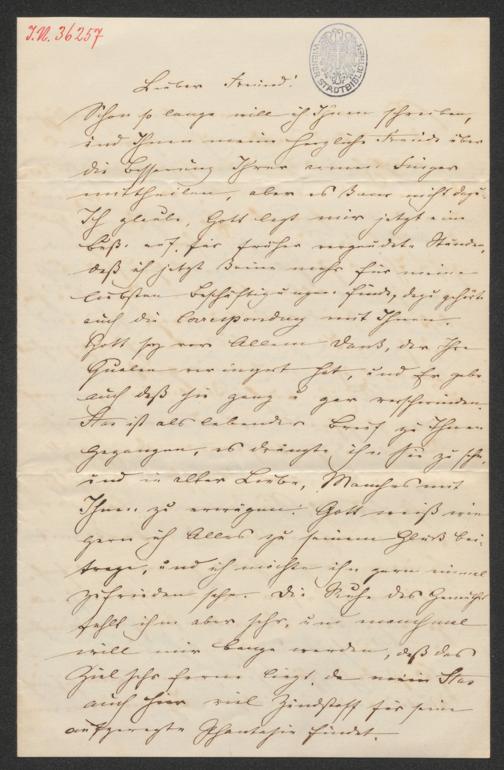 J.N. 36257
WIENER STADTBIBLIOTHEK
Lieber Freund!
Schon so lange will ich Ihnen schreiben,
und Ihnen meine herzliche Freude über
die Besserung Ihrer armen Finger
mittheilen, aber es kam nicht dazu.
Ich glaube, Gott legt mir jetzt eine
Buß auf für früher vergeudete Stunden,
daß ich jetzt keine mehr für meine
liebsten Beschäftigungen finde, dazu gehört
auch die Correspondenz mit Ihnen.
Gott sey vor Allem Dank, der Ihre
Qualen verringert hat, und Er gebe
auch daß sie ganz u gar verschwinden.
ist als lebender Brief zu Ihnen
gegangen, es drängte ihn Sie zu sehn,
und in alter Liebe, Manches mit
Ihnen zu erwägen. Gott weiß wie
gern ich Alles zu seinem Glück bei-
trage, und ich möchte ihn gern einmal
zufrieden sehn. Die Ruhe des Gemüthes
fehlt ihm aber sehr, und manchmal
will mir bange werden, daß das
Ziel sehr ferne liegt, da
auch hier viel Zündstoff für seine
aufgeregte Phantasie findet.